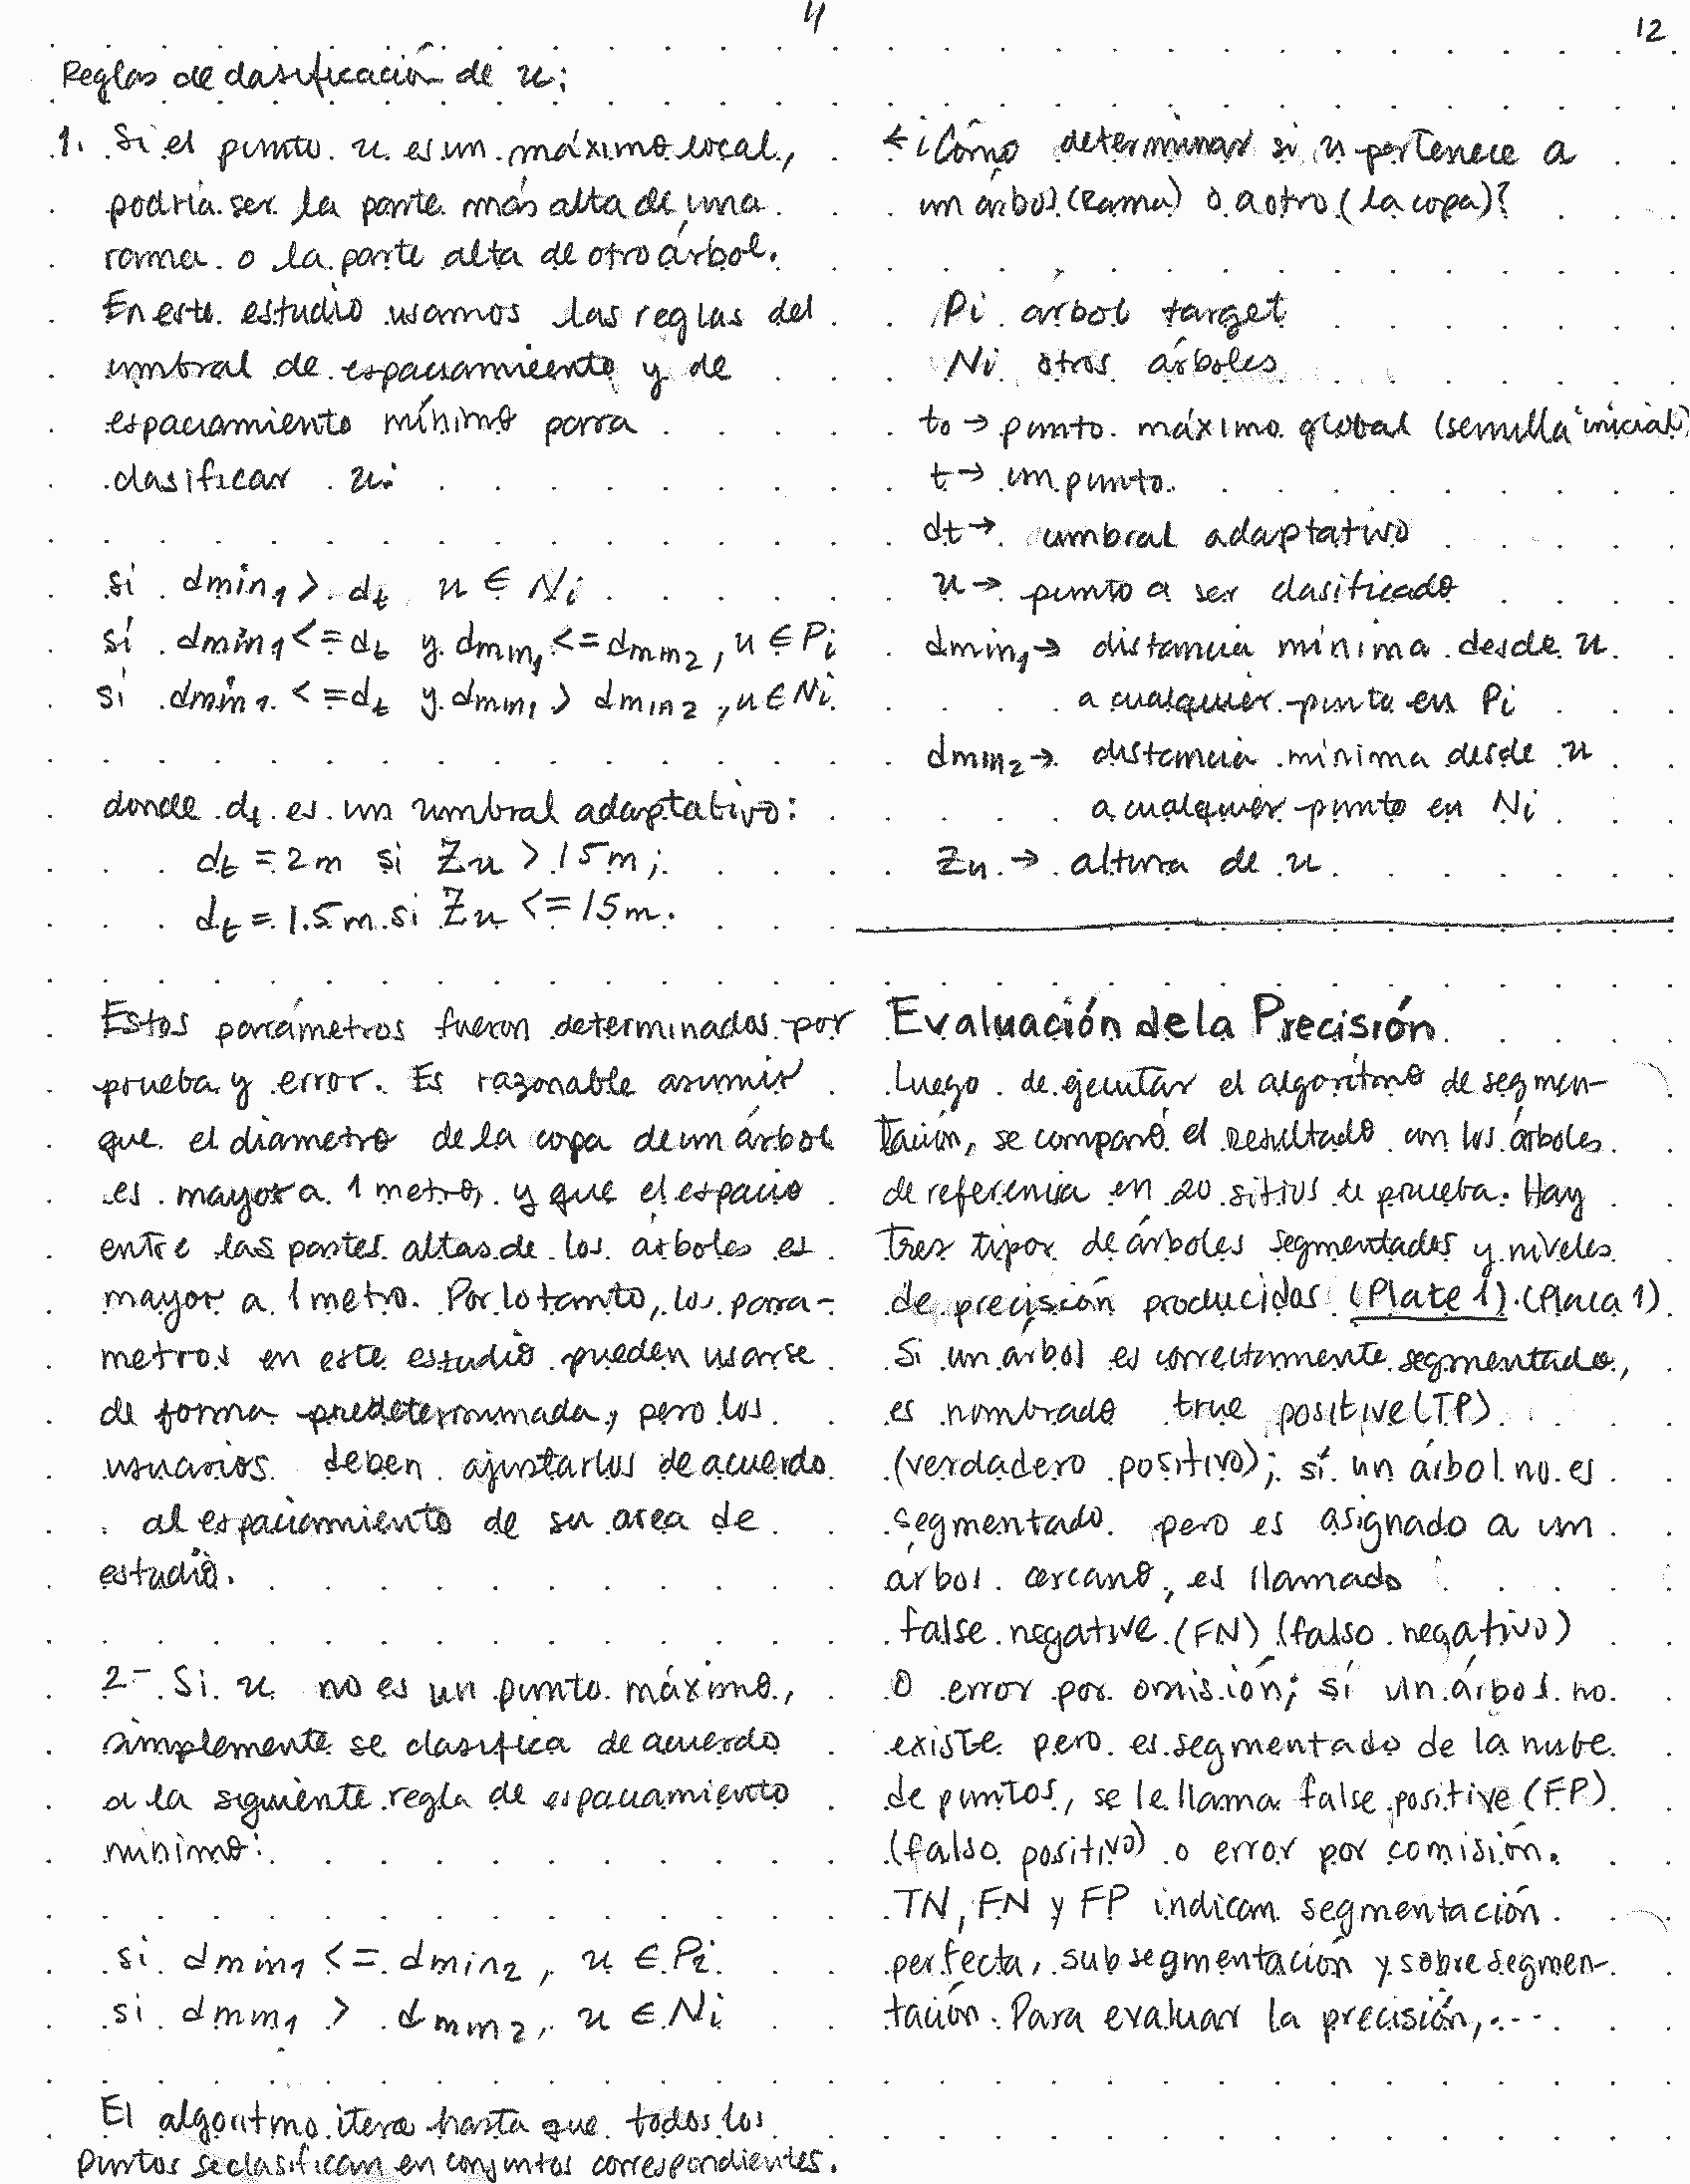 11
Reglas de clasificación de u:
1. Si el punto u es un máximo local,
podría ser la parte más alta de una
rama o la parte alta de otro árbol.
En este estudio usamos las reglas del
umbral de espaciamiento y de
espaciamiento mínimo para
clasificar u:
si dmin1 > dt u ∈ Ni
si dmin1 <= dt y dmin1 <= dmin2, u ∈ Pi
si dmin1 <= dt y dmin1 > dmin2, u ∈ Ni
donde dt es un umbral adaptativo:
dt = 2m si Zu > 15m;
dt = 1.5m si Zu <= 15m.
Estos parámetros fueron determinados por
prueba y error. Es razonable asumir
que el diametro de la copa de un árbol
es mayor a 1 metro, y que el espacio
entre las partes altas de los árboles es
mayor a 1 metro. Por lo tanto, los pará-
metros en este estudio pueden usarse
de forma predeterminada, pero los
usuarios deben ajustarlos de acuerdo
al espaciamiento de su area de
estudio.
2- Si u no es un punto máximo,
simplemente se clasifica de acuerdo
a la siguiente regla de espaciamiento
mínimo:
si dmin1 <= dmin2, u ∈ Pi
si dmin1 > dmin2, u ∈ Ni
El algoritmo itera hasta que todos los
puntos se clasifican en conjuntos correspondientes.
12
← ¿Cómo determinar si u pertenece a
un árbol (Rama) o a otro (la copa)?
Pi árbol target
Ni otros árboles
to → punto máximo global (semilla inicial)
t → un punto
dt → umbral adaptativo
u → punto a ser clasificado
dmin1 → distancia mínima desde u
a cualquier punto en Pi
dmin2 → distancia mínima desde u
a cualquier punto en Ni
Zu → altura de u
Evaluación de la Precisión
Luego de ejecutar el algoritmo de segmen-
tación, se comparó el resultado con los árboles
de referencia en 20 sitios de prueba. Hay
tres tipos de árboles segmentados y niveles
de precisión producidos (Plate 1) (Placa 1)
Si un árbol es correctamente segmentado,
es nombrado true positive (TP)
(verdadero positivo); si un árbol no es
segmentado pero es asignado a un
árbol cercano, es llamado
false negative (FN) (falso negativo)
o error por omisión; si un árbol no
existe pero es segmentado de la nube
de puntos, se le llama false positive (FP)
(falso positivo) o error por comisión.
TN, FN y FP indican segmentación
perfecta, subsegmentación y sobresegmen-
tación. Para evaluar la precisión, ...